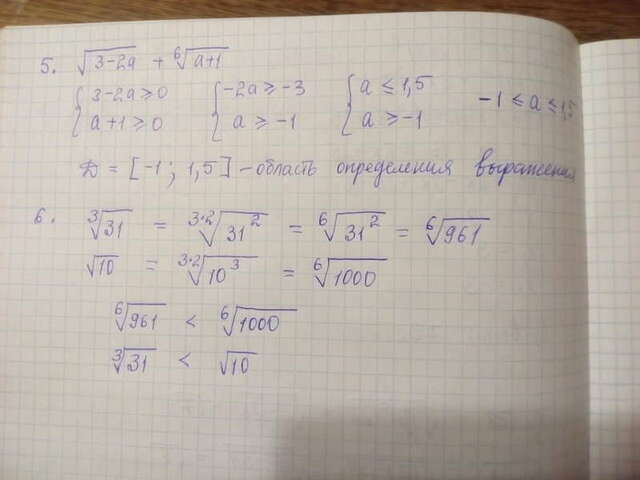 5. √(3-2a) + ⁶√(a+1)
{ 3-2a ≥ 0 { -2a ≥ -3 { a ≤ 1,5 -1 ≤ a ≤ 1,5
a+1 ≥ 0 a ≥ -1 a ≥ -1
D = [-1; 1,5] - область определения выражения
6. ³√31 = ³·²√31² = ⁶√31² = ⁶√961
√10 = ³·²√10³ = ⁶√1000
⁶√961 < ⁶√1000
³√31 < √10